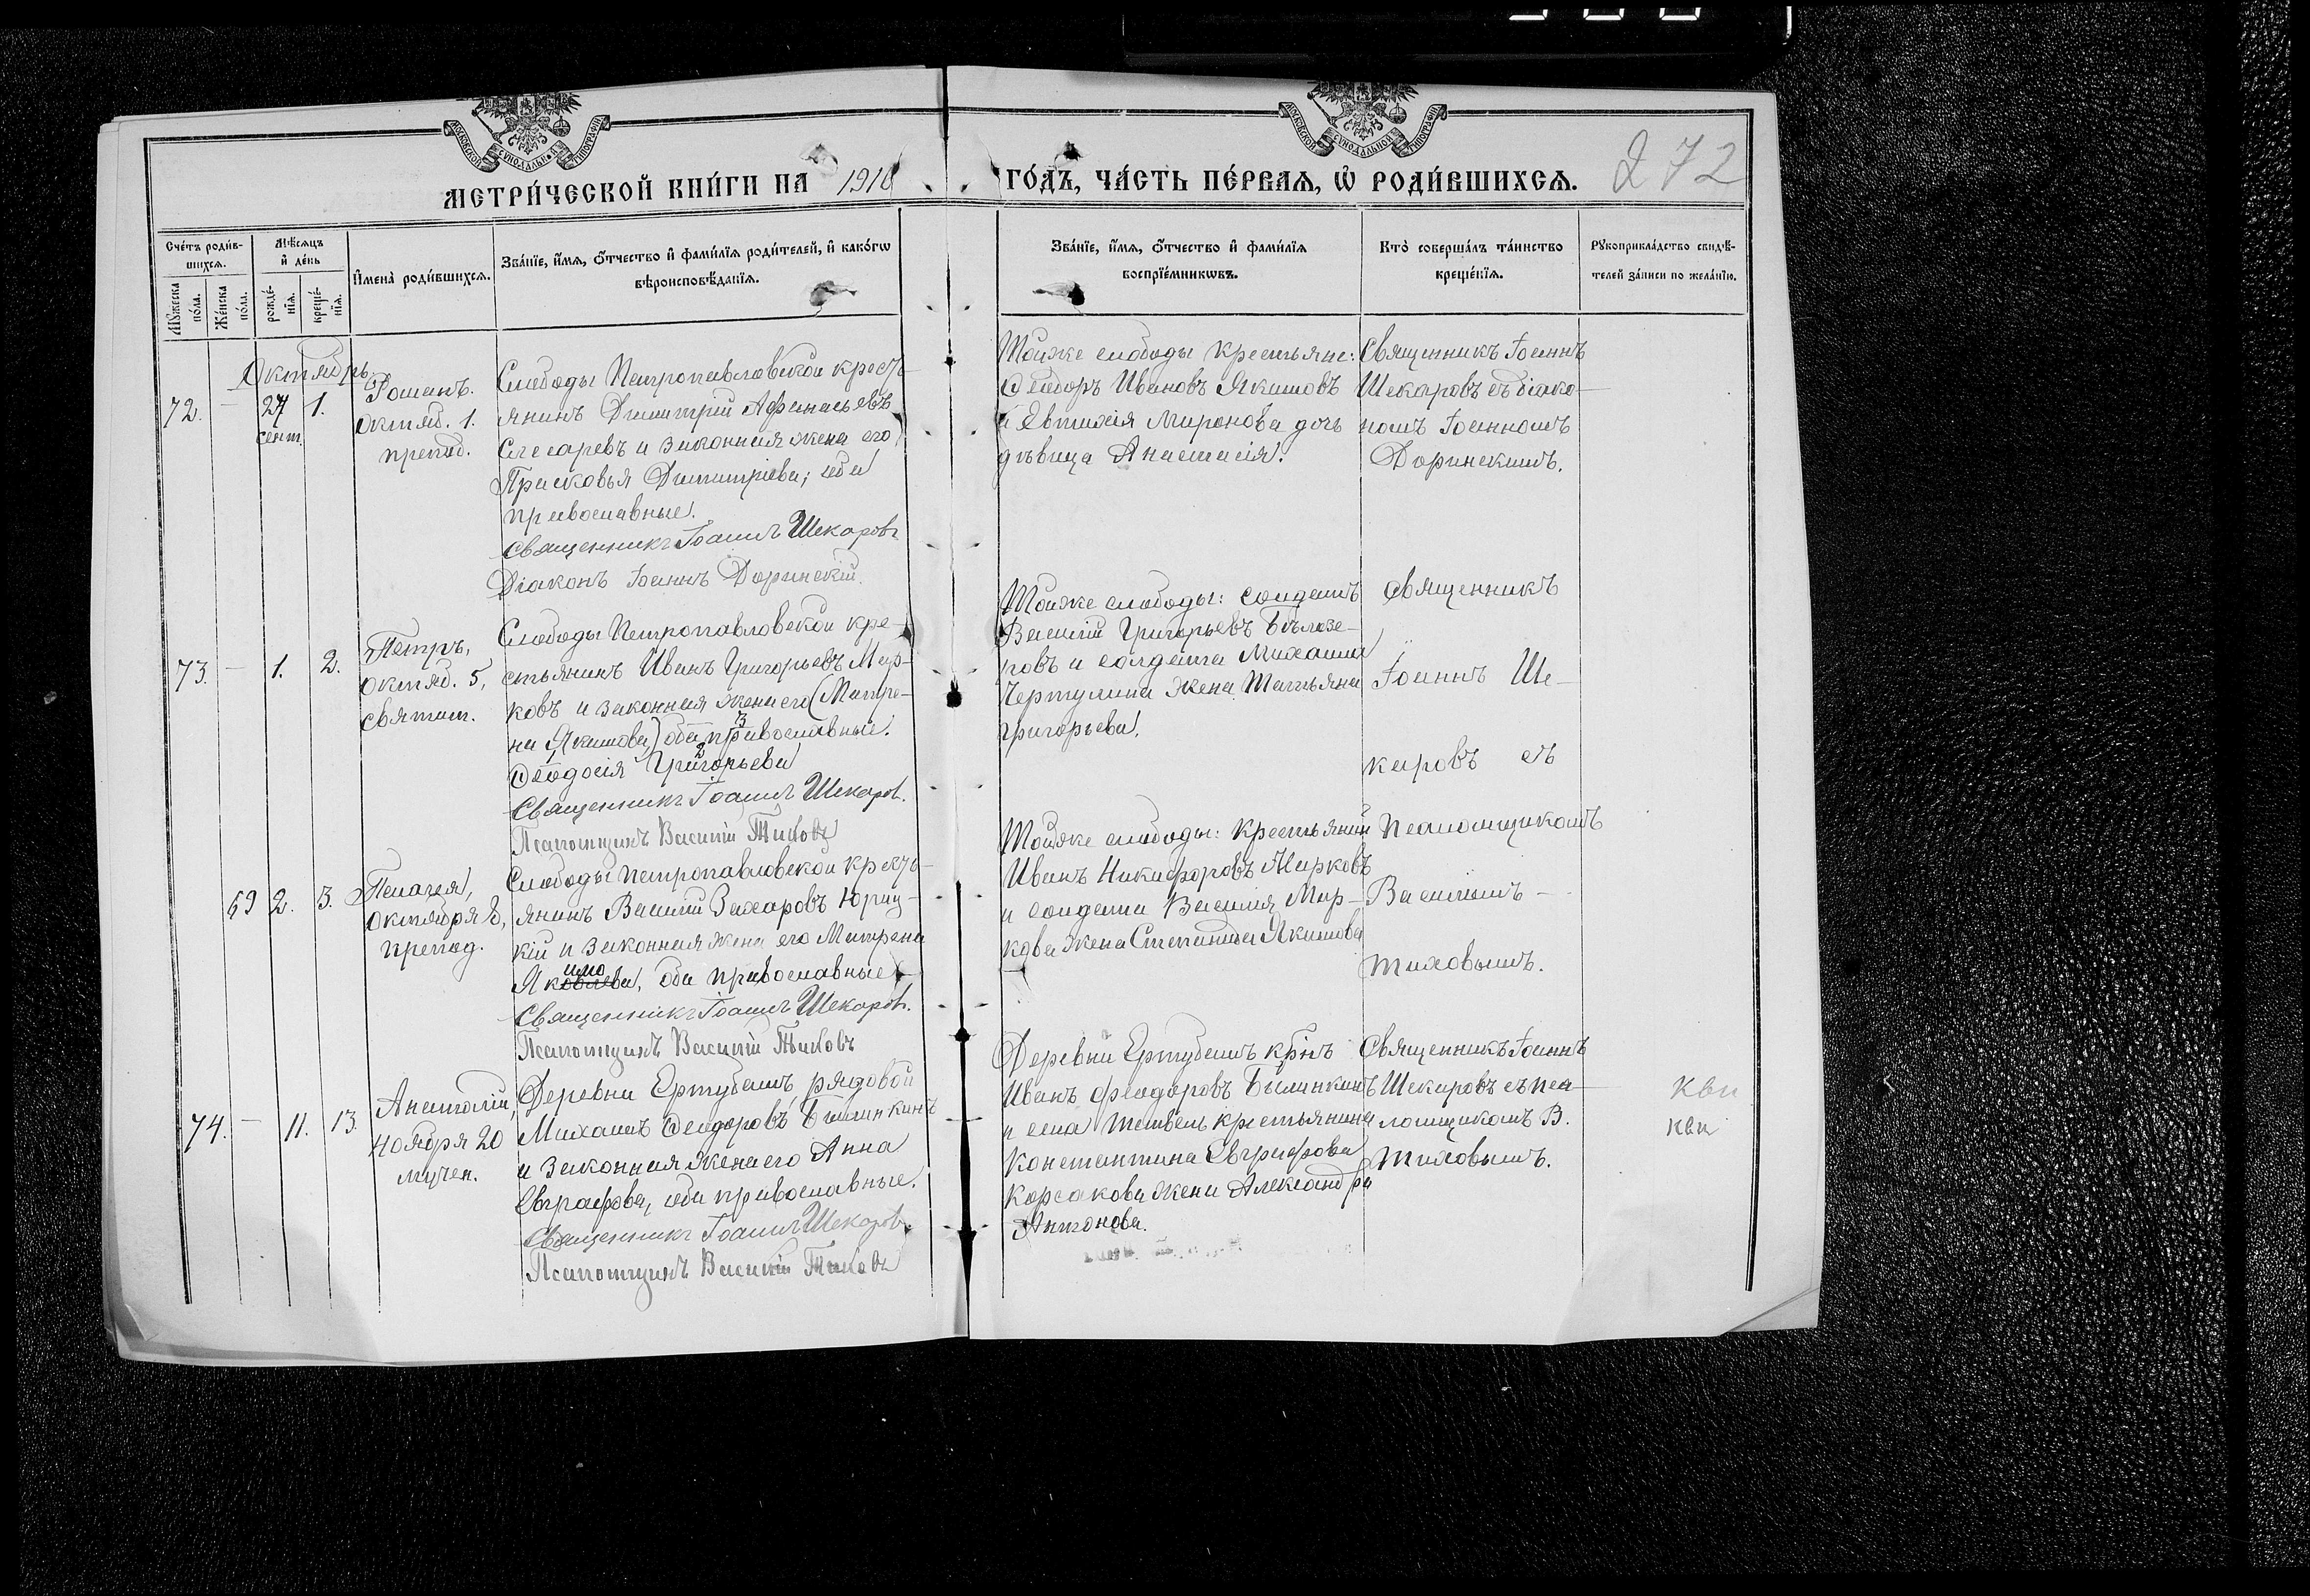 МОСКОВСКОЙ СѴНОДАЛЬНОЙ ТИПОГРАФІИ
МОСКОВСКОЙ СѴНОДАЛЬНОЙ ТИПОГРАФІИ
МЕТРИ́ЧЕСКОЙ КНИ́ГИ НА 1910
ГО́ДЪ, ЧА́СТЬ ПЕ́РВАѦ, Ѡ҆ РОДИ́ВШИХСѦ.
272
Сче́тъ роди́в-
шихсѧ.
Мꙋ́жеска по́ла.
Же́нска по́ла.
Мѣ́сѧцъ
и҆ де́нь
рожде́-нїѧ.
креще́-нїѧ.
И҆мена̀ роди́вшихсѧ.
Зва́нїе, и҆́мѧ, ѻ҆́тчество и҆ фами́лїѧ роди́телей, и҆ како́гѡ
вѣроисповѣ́данїѧ.
Зва́нїе, и҆́мѧ, ѻ҆́тчество и҆ фами́лїѧ
воспрїе́мникѡвъ.
Кто̀ соверша́лъ та́инство
креще́нїѧ.
Рꙋкоприкла́дство свидѣ́-
телей за́писи по жела́нїю.
Октябрь
72. — 27 сент. 1.
Романъ.
Октяб. 1.
препод.
Слободы Петропавловской кресть-
янинъ Димитрій Афанасьевъ
Слесаревъ и законная жена его
Прасковья Димитріева; оба
православные.
Священникъ Іоаннъ Шекаровъ
Діаконъ Іоаннъ Доринскій.
Тойже слободы крестьяне:
Ѳеодоръ Ивановъ Якимовъ
и Евтихія Миронова дочь
дѣвица Анастасія.
Священникъ Іоаннъ
Шекаровъ съ діако-
номъ Іоанномъ
Доринскимъ.
73. — 1. 2.
Петръ,
Октяб. 5,
святит.
Слободы Петропавловской кре-
стьянинъ Иванъ Григорьевъ Мар-
ковъ и законная жена его (Матре-
на Якимова,) оба православные.
3
1 2
Ѳеодосія Григорьева
Священникъ Іоаннъ Шекаровъ.
Псаломщикъ Василій Тиховъ
Тойже слободы: солдатъ
Василій Григорьевъ Бѣлозе-
ровъ и солдата Михаила
Чертулина жена Татьяна
Григорьева.
Священникъ
Іоаннъ Ше-
каровъ съ
псаломщикомъ
Василіемъ —
Тиховымъ.
69 2. 3.
Пелагея,
Октября 8,
препод.
Слободы Петропавловской кресть-
янинъ Василій Захаровъ Юриц-
кій и законная жена его Матрена
имо
Яковлева, оба православные
Священникъ Іоаннъ Шекаровъ.
Псаломщикъ Василій Тиховъ
Тойже слободы: крестьянин
Иванъ Никифоровъ Жирковъ
и солдата Василія Мар-
кова жена Степанида Якимова
74. — 11. 13.
Анатолій,
ноября 20
мучен.
Деревни Ертубешъ, рядовой
Михаилъ Ѳеодоровъ Былинкинъ
и законная жена его Анна
Евграфова, оба православные.
Священникъ Іоаннъ Шекаровъ
Псаломщикъ Василій Тиховъ
Деревни Ертубешъ крнъ
Иванъ Феодоровъ Былинкинъ
и села Тетвель крестьянина
Константина Евграфова
Корсакова жена Александра
Антонова.
Священникъ Іоаннъ
Шекаровъ съ пса-
ломщикомъ В.
Тиховымъ.
кви
кви